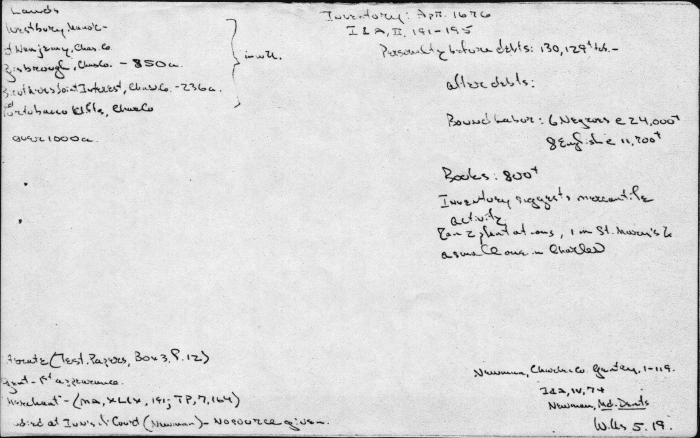 Lands
Westbury Manor -
Chas. Co.
Chas Co. - 850a.
Brothers Joint Interest, Chas Co. - 236a.
Portobacco Chas Co
in will.
over 1000a
Inventory: Apr. 1676
I & A, II, 191-195
Personalty before debts: 130,129 lbs. -
after debts:
Bound Labor: 6 Negroes @ 24,000
8 English @ 11,700
Books: 800
Inventory suggests mercantile
activity
Ran 2 plantations, 1 in St. Mary's &
a small one in Charles
(Test. Papers, Box 3, f. 12)
Gent - 1st appearance
Merchant - (MA, XLIX, 191; TP, 7, 164)
died at Court (Newman) - No source given.
Newman, Charles Co. Gentry, 1-119.
I & A, IV, 74
Newman, Md. Dents
Wills 5. 19.